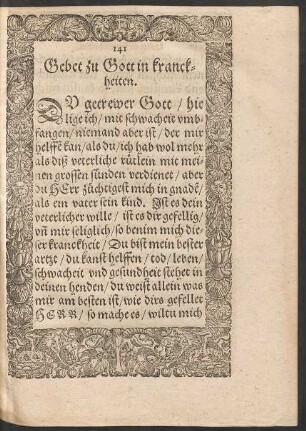 141
Gebet zu Gott in kranck⸗
heiten.
DV getrewer Gott / hie
lige ich / mit schwacheit vmb⸗
fangen / niemand aber ist / der mir
helffē kan / als du / ich hab wol mehr
als diß veterliche rütlein mit mei⸗
nen grossen sünden verdienet / aber
du HErr züchtigest mich in gnadē /
als ein vater sein kind. Ist es dein
veterlicher wille / ist es dir gefellig /
vñ mir seliglich / so benim mich die⸗
ser kranckheit / Du bist mein bester
artzt / du kanst helffen / tod / leben /
schwacheit vnd gesundheit stehet in
deinen henden / du weist allein was
mir am besten ist / wie dirs gefellet
HERR / so mache es / wiltu mich